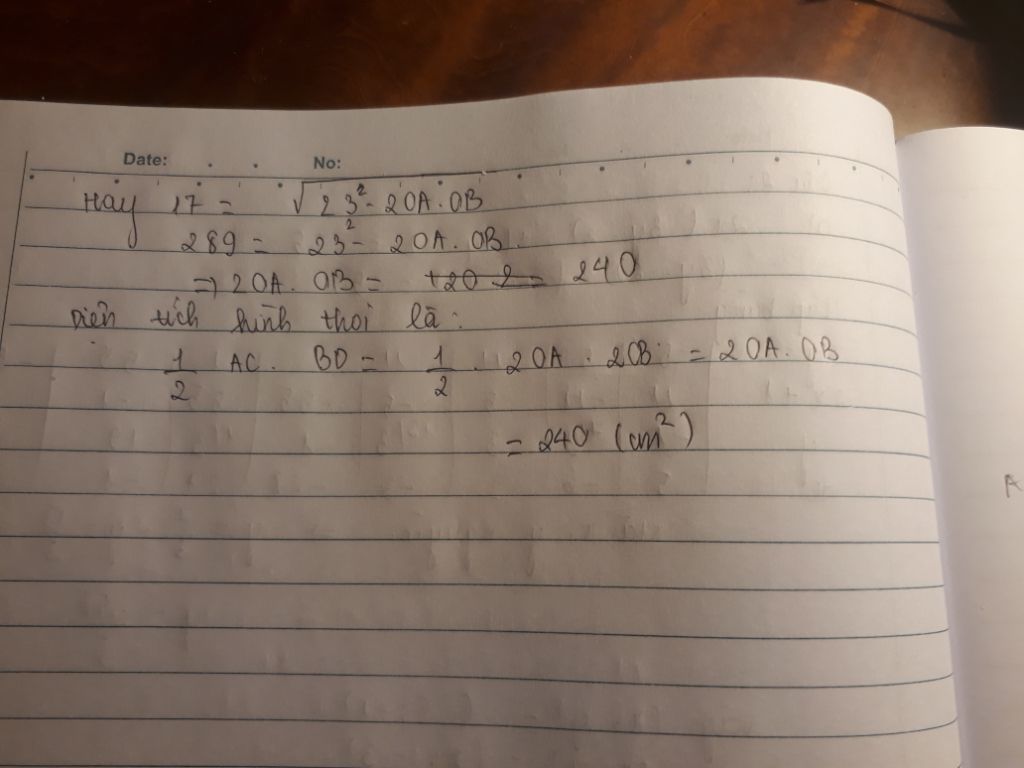 Date: No:
Hay 17 = √(23² - 2OA.OB)
289 = 23² - 2OA.OB
=> 2OA.OB = 240
Diện tích hình thoi là:
1/2 AC. BD = 1/2 . 2OA . 2OB = 2OA.OB
= 240 (cm²)
A